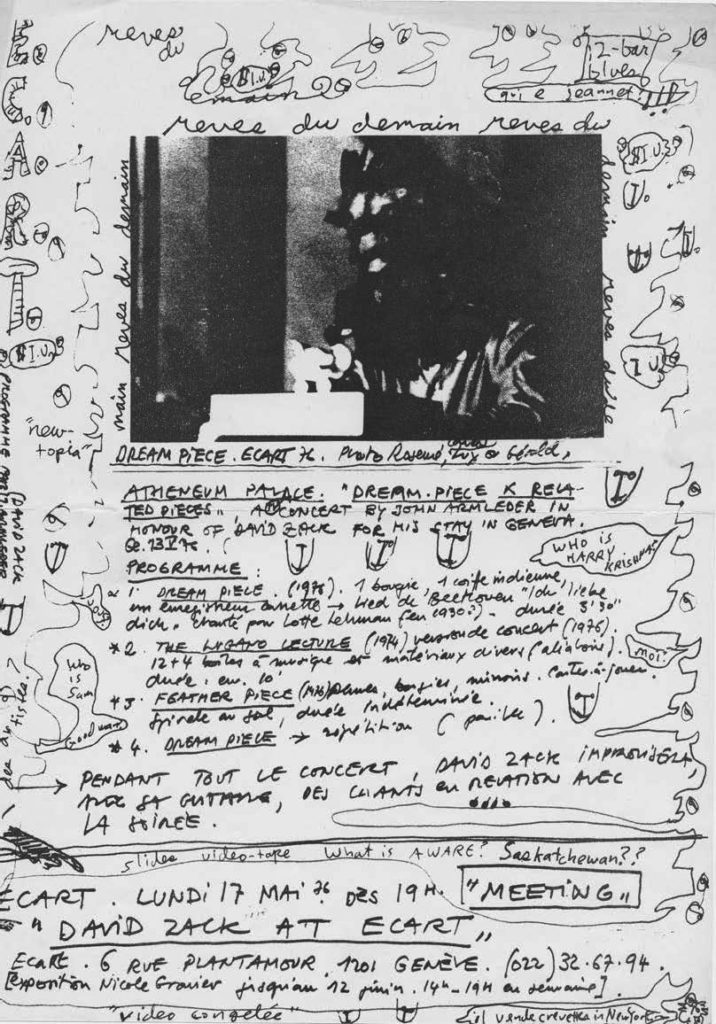 reves
du
S.I.U.
emain
12-bar
blues
qui e jeannet?!!!
reves du demain reves du
main reves du demain
demain reves du
S.I.U.
S.I.U.
S.I.U.
"new-topia"
DAVID ZACK
DREAM PIECE. ECART 76. Photo Gérald,
ATHENEUM PALACE. "DREAM.PIECE & RELA-
TED PIECES", A CONCERT BY JOHN ARMLEDER IN
HONOUR OF DAVID ZACK FOR HIS STAY IN GENEVA.
13 V 76.
WHO IS
HARRY
KRISHNA?
PROGRAMME:
1. DREAM PIECE. (1976). 1 bougie, 1 coiffe indienne,
un enregistreur cassette → Lied de Beethoven "Ich liebe
dich" chanté par Lotte Lehman (en 1930?) - durée 3'30"
*2. THE LUGANO LECTURE (1974) version de concert (1976).
12+4 boîtes à musique et matériaux divers (aléatoires).
durée: env. 10'
MOI?
*3. FEATHER PIECE (1976) plumes, bougies, miroirs. Cartes-à-jouer.
spirale au sol, durée indéterminée.
*4. DREAM PIECE → répétition
Who
is
Sam
Goodman
→ PENDANT TOUT LE CONCERT, DAVID ZACK IMPROVISERA,
AVEC SA GUITARE, DES CHANTS EN RELATION AVEC
LA SOIREE.
slides video-tape What is AWARE? Saskatchewan??
ECART. LUNDI 17 MAI 76 DES 19H. "MEETING"
"DAVID ZACK AT ECART"
ECART. 6 RUE PLANTAMOUR. 1201 GENÈVE. (022) 32.67.94.
[exposition Nicole Gravier jusqu'au 12 juin. 14h-19h en semaine].
"video congelée"
il vende crevettes in New York